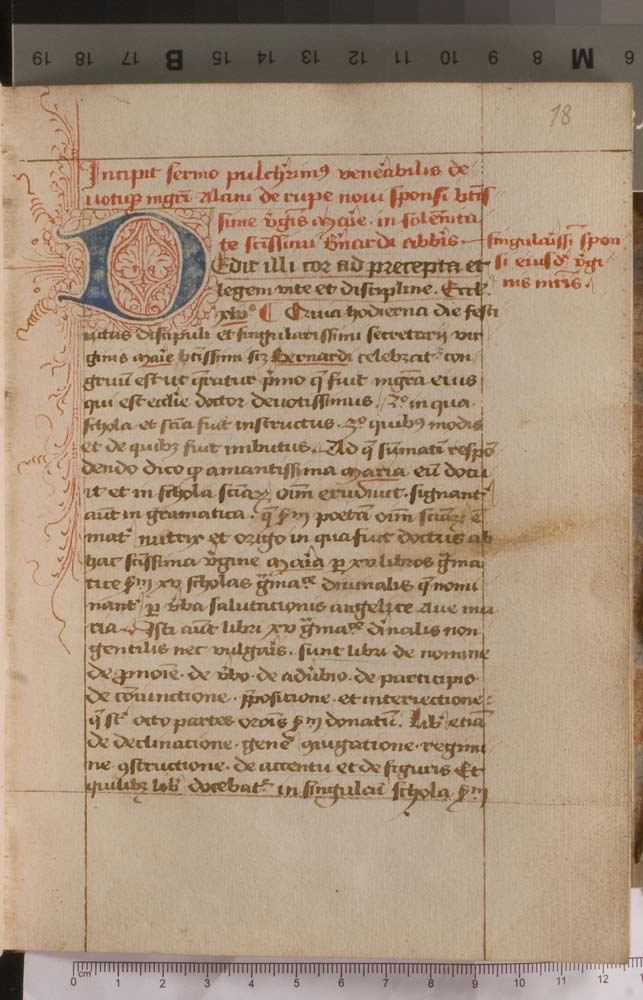 18
Incipit sermo pulch'rim9 ven'abilis de
uotiq3 mgri Alani de rupe noui sponsi btis
sime v'gis Marie · in solenita
te sctissimi B'nardi abbis
singularissi spon
si eiusd' v'gi
nis mris ·
DEdit illi cor ad precepta et
legem vite et discipline. Eccli.
xlvo ¶ Quia hodierna die festi
uitas discipuli et singularissimi secretarij vir
ginis Marie btissimi Bernardi celebrat' con
gruu est ut q'ratur p'mo q' fuit mgra eius
qui est ecclie doctor deuotissimus. 2o in qua
schola et scia fuit instructus. 3o quib9 modis
et de quib3 fuit imbutus. Ad q' sumati respo
dendo dico q' amantissima Maria eu docu
it et in schola sciar3 oim erudiuit · signant'
aut in gramatica · q' s'm poeta oim sciar3 e
mat' nutrix et origo in qua fuit doctus ab
hac sctissima v'gine Maria p xv libros g'ma
tice s'm xv scholas g'mace diuinalis q' nomi
nant' p v'ba salutationis angelice Aue ma
ria · Isti aut libri xv g'mace di'nalis non
gentilis nec vulgaris · sunt libri de nomine
de p'noie · de v'bo · de adu'bio · de participio
de coniunctione · p'positione · et interiectione :
q' st' octo partes orois s'm donatu. Lib' etia
de declinatione · gene' 9iugatione · regimi
ne 9structione · de accentu et de figuris Et
quilib3 lib' docebat' in singulari schola s'm